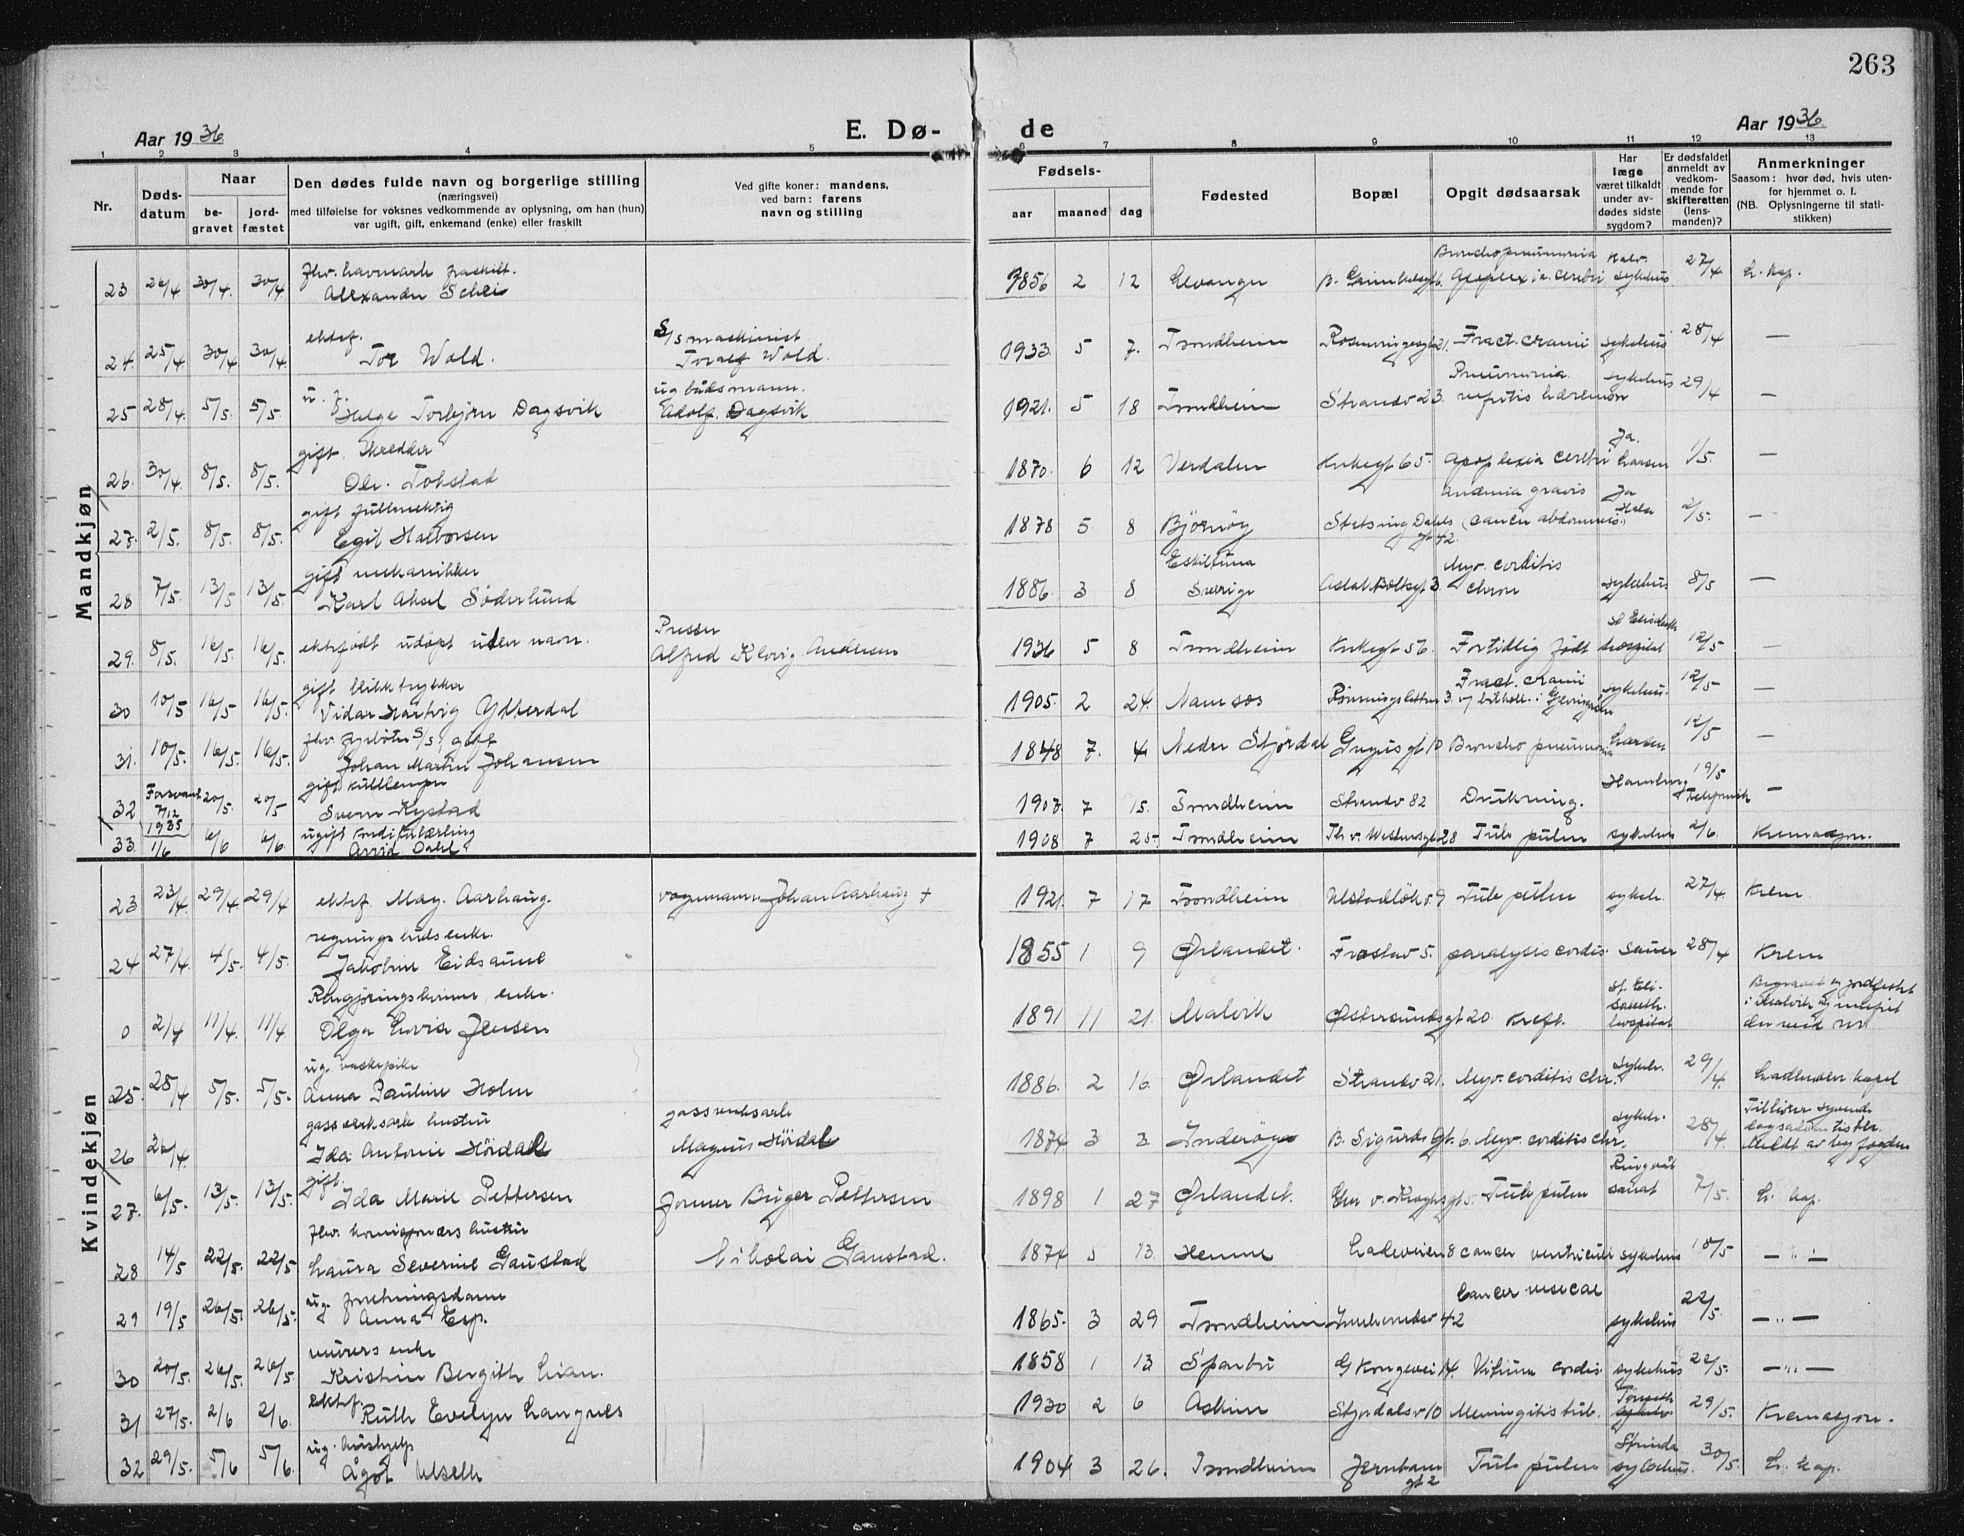 263
Aar 1936
E. Dø-
de
Aar 1936
1 2 3 4 5 6 7 8 9 10 11 12 13
Nr.
Døds-
datum
Naar
be-
gravet
jord-
fæstet
Den dødes fulde navn og borgerlige stilling
(næringsvei)
med tilføielse for voksnes vedkommende av oplysning, om han (hun)
var ugift, gift, enkemand (enke) eller fraskilt
Ved gifte koner: mandens,
ved barn: farens
navn og stilling
Fødsels-
aar maaned dag
Fødested
Bopæl
Opgit dødsaarsak
Har
læge
været tilkaldt
under av-
dødes sidste
sygdom?
Er dødsfaldet
anmeldt av
vedkom-
mende for
skifteretten
(lens-
manden)?
Anmerkninger
Saasom: hvor død, hvis uten-
for hjemmet o. l.
(NB. Oplysningerne til stati-
stikken)
Mandkjøn
fraskilt. Bronchopneumonia
23 26/4 30/4. 30/4 Alexander Schei 1856 2 12 Levanger apoplexia cerebri sykehus 27/4 L. kap.
ektef. S/S maskinist
24. 25/4 30/4 30/4 Tor Wold. Toralf Wold. 1933 5 7. Trondheim Fract. cranii sykehus 28/4 —
Pneumonia sykehus
25 28/4. 5/5. 5/5 Helge Torbjørn Dagsvik Adolf. Dagsvik 1921. 5 18 Trondheim Strandv 23. 29/4 —
gift. Skredder Ja.
26. 30/4. 8/5. 8/5. Ole. Tokstad 1870. 6 12 Verdalen Kirkegt 65. apoplexia cerebri Larsen 1/5. —
gift Anæmia gravis Ja
27. 2/5. 8/5. 8/5. Egil Halvorsen 1878 5 8 Bjørnør Statsing Dahls gt 42. (cancer abdominis.) 2/5. —
gift mekanikker Eskiltuna Myocorditis
28 7/5. 13/5 13/5. Karl Aksel Söderlund 1886. 3 8 Sverige chron sykehus 8/5 —
Presser St Elisabeth
29. 8/5. 16/5. 16/5. ektefødt udøpt uten navn. Alfred Andersen 1936 5 8 Trondheim Kirkegt 56. Fortidlig født hospital 12/5 —
gift blikktrykker Fract. cranii
30 10/5 16/5 16/5. Vidar Hartvig Ytterdal 1905. 2 24. Namsos sykehus. 12/5 —
fhv. fyrbøter S/S, gift
31. 10/5. 16/5. 16/5. Johan Martin Johansen 1848 7. 4 Nedre Stjørdal gt 10 Broncho pneumonia Larsen 12/5 —
gift kullemper Hamburg 19/5
32 Forsvant 7/12 1935 20/5. 20/5 Sverre Rystad 1907. 7 15. Trondheim Strandv 82 Drukning. —
ugift
33. 1/6 6/6 6/6. Arvid Dahl 1908 7 25. Trondheim Th. v. Westensgt 28 Tub pulm sykehus 2/6. Kremasjon.
Kvindekjøn
23 23/4. 29/4 29/4 ektef May. Aarhaug. vognmann Johan Aarhaug + 1921. 7 17 Trondheim Tub pulm sykeh. 27/4. Krem
regningsbuds enke.
24 27/4. 4/5. 4/5. Jakobine Eidsaune 1855 1 9 Ørlandet. Frostav 5. paralyses cordis. Sauer 28/4 Krem
Rengjøringskvinne, enke. St. Eli- Begravet og jordfestet
sabeth. i Malvik og innført
0 2/4 11/4 11/4 Olga Jensen 1891 11 21. Malvik Østersundsgt 20 Kreft. hospital der med nr.
ug. vaskepike
25. 28/4 5/5. 5/5. Anna Pauline Holm 1886. 2 16. Ørlandet Strandv 21. Myocorditis chr. sykeh. 29/4. Lademoen kapel
gassverksarb hustru gassverksarb sykeh. Tilhører syvende
dagsadventister.
26 26/4. Ida Antonie Hörda Magnus 1874 3 3. Inderøy B. Sigurds gt. 6. Myo. corditis chr. 28/4. Meldt av byfogden
gift.
27. 6/5. 13/5. 13/5. Ida Marie Pettersen Birger Pettersen 1898 1 27 Ørlandet. gt 5. Tub pulm 7/5. L. kap.
hustru
28 14/5 22/5. 22/5 Laura Severine Gaustad Nikolai Gaustad. 1874 5 13. Hemne Ladeveien 8 cancer ventriculi sykehus 18/5 — „ —
ug. forretningsdame Cancer vesicae
29 19/5 26/5. 26/5. Anna Esp. 1865. 3 29 Trondheim Innherredsv 42 sykehus 22/5. — „ —
murers enke
30 20/5. 26/5. 26/5 Kristine Bergitte Lian. 1858 1 13 Sparbu G Kongevei 14. Vitium cordis. sykehus 22/5. — „ —
ektef.
31 27/5. 2/6 2/6. Ruth Evelyn Langnes 1930 2 6 Askim Stjørdalsv 10 Meningitis tub. 29/5. Kremasjon.
ug. hushjelp Strinda
32 29/5. 5/6 5/6. Ågot 1904 3 26. Trondheim Jernbane gt 2 Tub pulm sykehus. 30/5. L. kap.